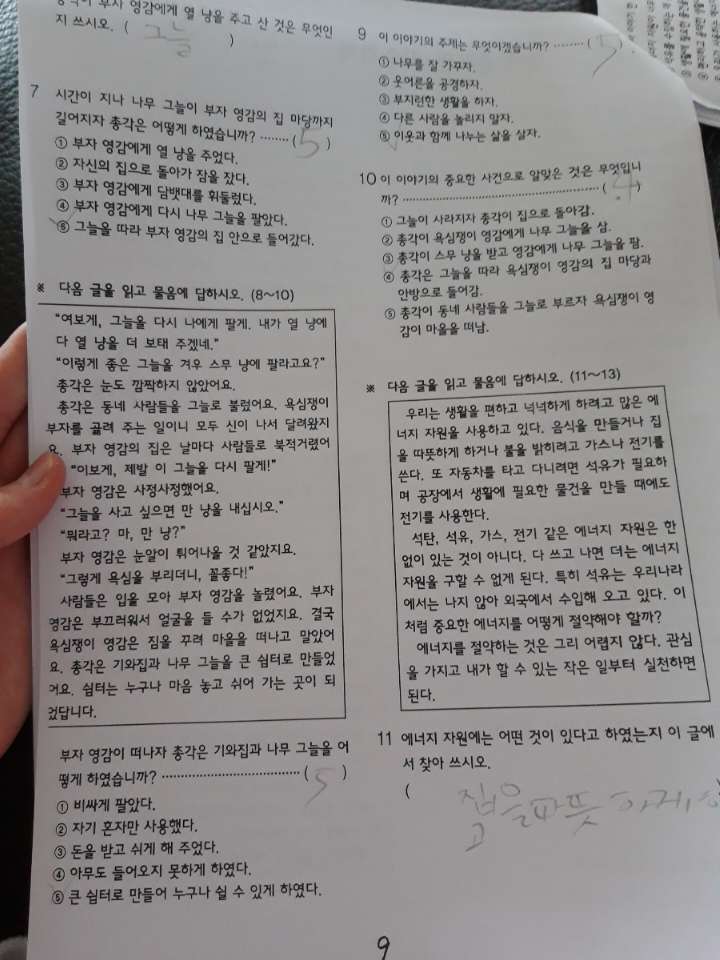 부자 영감에게 열 냥을 주고 산 것은 무엇인
지 쓰시오. ( 그늘 )
7 시간이 지나 나무 그늘이 부자 영감의 집 마당까지
길어지자 총각은 어떻게 하였습니까? ········( 5 )
① 부자 영감에게 열 냥을 주었다.
② 자신의 집으로 돌아가 잠을 잤다.
③ 부자 영감에게 담뱃대를 휘둘렀다.
④ 부자 영감에게 다시 나무 그늘을 팔았다.
⑤ 그늘을 따라 부자 영감의 집 안으로 들어갔다.
※ 다음 글을 읽고 물음에 답하시오. (8~10)
“여보게, 그늘을 다시 나에게 팔게. 내가 열 냥에
다 열 냥을 더 보태 주겠네.”
“이렇게 좋은 그늘을 겨우 스무 냥에 팔라고요?”
총각은 눈도 깜짝하지 않았어요.
총각은 동네 사람들을 그늘로 불렀어요. 욕심쟁이
부자를 골려 주는 일이니 모두 신이 나서 달려왔지
요. 부자 영감의 집은 날마다 사람들로 북적거렸어
“이보게, 제발 이 그늘을 다시 팔게!”
부자 영감은 사정사정했어요.
“그늘을 사고 싶으면 만 냥을 내십시오.”
“뭐라고? 마, 만 냥?”
부자 영감은 눈알이 튀어나올 것 같았지요.
“그렇게 욕심을 부리더니, 꼴좋다!”
사람들은 입을 모아 부자 영감을 놀렸어요. 부자
영감은 부끄러워서 얼굴을 들 수가 없었지요. 결국
욕심쟁이 영감은 짐을 꾸려 마을을 떠나고 말았어
요. 총각은 기와집과 나무 그늘을 큰 쉼터로 만들었
어요. 쉼터는 누구나 마음 놓고 쉬어 가는 곳이 되
었답니다.
부자 영감이 떠나자 총각은 기와집과 나무 그늘을 어
떻게 하였습니까? ··································( 5 )
① 비싸게 팔았다.
② 자기 혼자만 사용했다.
③ 돈을 받고 쉬게 해 주었다.
④ 아무도 들어오지 못하게 하였다.
⑤ 큰 쉼터로 만들어 누구나 쉴 수 있게 하였다.
9 이 이야기의 주제는 무엇이겠습니까? ········( 5 )
① 나무를 잘 가꾸자.
② 웃어른을 공경하자.
③ 부지런한 생활을 하자.
④ 다른 사람을 놀리지 말자.
⑤ 이웃과 함께 나누는 삶을 살자.
10 이 이야기의 중요한 사건으로 알맞은 것은 무엇입니
까? ··················································( 4 )
① 그늘이 사라지자 총각이 집으로 돌아감.
② 총각이 욕심쟁이 영감에게 나무 그늘을 삼.
③ 총각이 스무 냥을 받고 영감에게 나무 그늘을 팜.
④ 총각은 그늘을 따라 욕심쟁이 영감의 집 마당과
안방으로 들어감.
⑤ 총각이 동네 사람들을 그늘로 부르자 욕심쟁이 영
감이 마을을 떠남.
※ 다음 글을 읽고 물음에 답하시오. (11~13)
우리는 생활을 편하고 넉넉하게 하려고 많은 에
너지 자원을 사용하고 있다. 음식을 만들거나 집
을 따뜻하게 하거나 불을 밝히려고 가스나 전기를
쓴다. 또 자동차를 타고 다니려면 석유가 필요하
며 공장에서 생활에 필요한 물건을 만들 때에도
전기를 사용한다.
석탄, 석유, 가스, 전기 같은 에너지 자원은 한
없이 있는 것이 아니다. 다 쓰고 나면 더는 에너지
자원을 구할 수 없게 된다. 특히 석유는 우리나라
에서는 나지 않아 외국에서 수입해 오고 있다. 이
처럼 중요한 에너지를 어떻게 절약해야 할까?
에너지를 절약하는 것은 그리 어렵지 않다. 관심
을 가지고 내가 할 수 있는 작은 일부터 실천하면
된다.
11 에너지 자원에는 어떤 것이 있다고 하였는지 이 글에
서 찾아 쓰시오.
( 집을따뜻하게
고
9